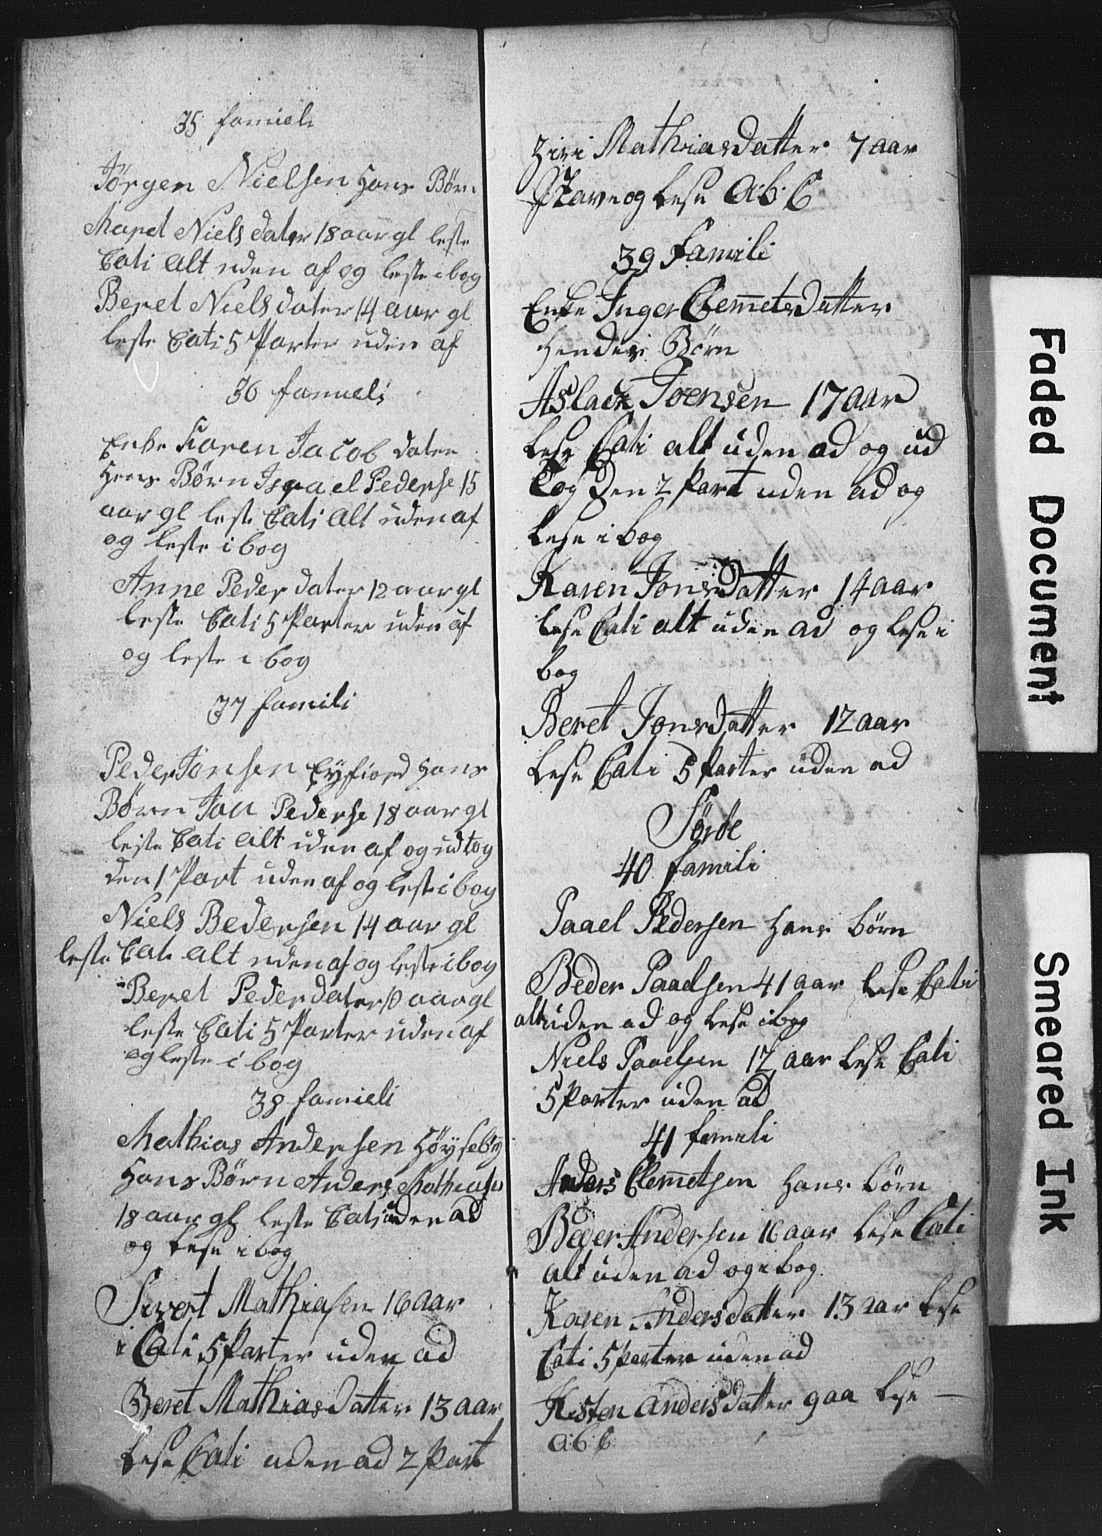 35 familie
Jörgen Nielsen Hans Börn
Maret Niels dater 18 aar gl leste
Cati alt uden af og leste i bog
Beret Niels dater 14 aar gl
leste Cati 5 Parter uden af
36 familie
Enke Karen Jacob dater
Hens Börn Israel Pederse 15
aar gl leste Cati Alt uden af
og leste i bog
Anne Peder dater 12 aar gl
leste Cati 5 Parter uden af
og leste i bog
37 famili
Peder Jonsen Eyfiord Hans
Börn Jon Pederse 18 aar gl
leste Cati Alt uden af og ud tog
den 1 Part uden af og leste i bog
Niels Bedersen 14 aar gl
leste Cati alt uden af og leste i bog
Beret Peder dater aar gl
leste Cati 5 Parter uden af
og leste i bog
38 famieli
Mathias Andersen Höyseby
Hans Börn Anders Mathiasen
18 aar gl leste Cati uden ad
og lese i bog
Sivert Mathiasen 16 aar
i Cati 5 Parter uden ad
Beret Mathiasdatter 13 aar
lese Cati uden ad 2 Part
Ziri Mathiasdatter 7 aar
Stave og lese AbC
39 Famili
Enke Inger Clemmetsdatter
Hendes Börn
Aslack Joensen 17 aar
lese Cati alt uden ad og ud
tog den 2 Part uden ad og
lese i bog
Karen Jonsdatter 14 aar
lese Cati alt uden ad og lese i
bog
Beret Jonsdatter 12 aar
lese Cati 5 Parter uden ad
40 famili
Paael Pedersen Hans börn
Beder Paaelsen 41 aar lese Cati
alt uden ad og lese i bog
Niels Paaelsen 12 aar lese Cati
5 Parter uden ad
41 famili
Anders Clemmetsen Hans börn
Beder Andersen 16 aar lese Cati
alt uden ad og i bog
Karen Andersdatter 13 aar lese
Cati 5 parter uden ad
Kisten Andersdatter 9 aa lese —
AbC
Faded Document
Smeared Ink